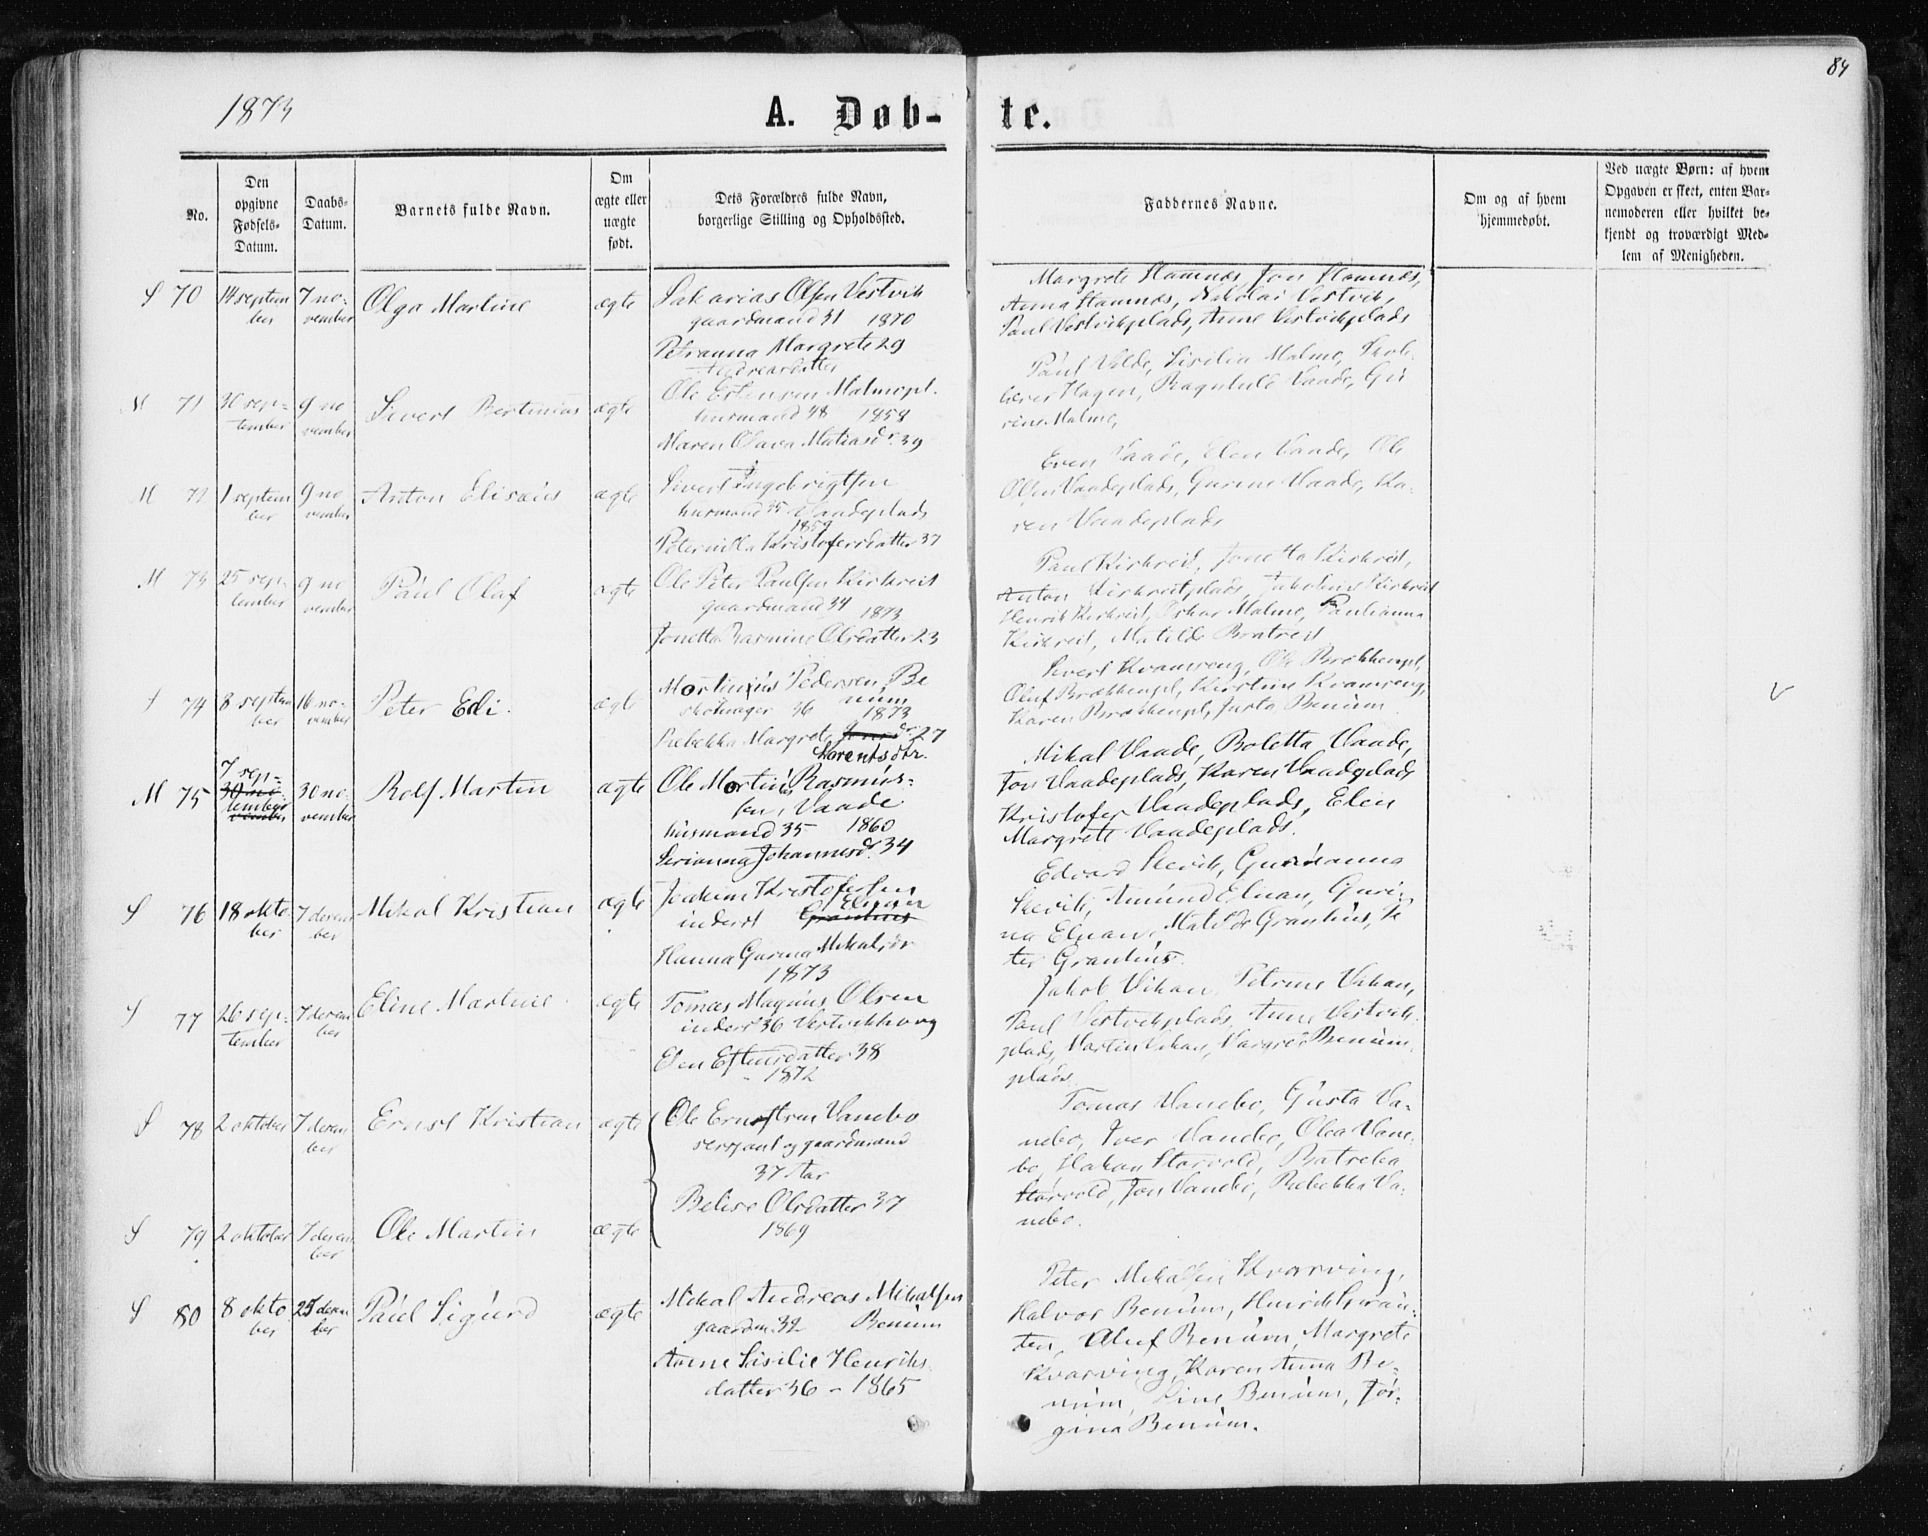 84
1873
A. Døb-
te.
No.
Den
opgivne
Fødsels-
Datum.
Daabs-
Datum.
Barnets fulde Navn.
Om
ægte eller
uægte
født.
Dets Forældres fulde Navn,
borgerlige Stilling og Opholdssted.
Faddernes Navne.
Om og af hvem
hjemmedøbt.
Ved uægte Børn: af hvem
Opgaven er skeet, enten Bar-
nemoderen eller hvilket be-
kjendt og troværdigt Med-
lem af Menigheden.
S 70
14 septem
ber
7 no-
vember
Olga Martine
ægte
Sakarias Olsen Vestvik
gaardmand 31 1870
Petranna Margrete 29
Andreasdatter
Margrete Stamnes, Jon Stamnes,
Anna Stamnes, Nikolai Vestvik,
Paul Vestvikplads, Anne Vestvikplads
M 71
30 sep-
tember
9 no
vember
Sivert Bertinius
ægte
Ole Estensen Malmopl.
husmand 38 1858
Maren Olava Matiasdr. 39
Paul Velde, Sisilia Malmo, Skole-
lærer Hagen, Ragnhild Vaade, Gu
rine Malmo,
M 72
1 septem
ber
9 no
vember
Anton Elisæus
ægte
Sivert Ingebrigtsen
husmand 35 Vaadeplads
1859
Peternilla Kristofersdatter 37
Even Vaade, Elen Vaade, Ole
Olsen Vaadeplads, Gurine Vaade, Ka-
ren Vaadeplads
M 73
25 sep-
tember
9 no
vember
Paul Olaf
ægte
Ole Peter Paulsen Kirkreit
gaardmand 34
1873
Jonetta Rasmine Olsdatter 23
Paul Kirkreit, Jonetta Kirkreit,
Anton Kirkreitplads, Jakobine Kirkreit
Henrik Kirkreit, Oskar Malmo, Paulianna
Kirkreit, Matilde Bratreit
S 74
8 septem
ber
16 no-
vember
Peter Edi.
ægte
Mortinius Pedersen, Be
num
skomager 36 1873
Rebekka Margrete dr 27
Lorentsdtr.
Sivert Kvamseng, Ole Brækkenpl,
Oluf Brækkenpl, Kirstine Kvamseng,
Karen Brækkenpl, Justa Benum
M 75
7 sep-
30 no-
tember
vember
30 no-
vember
Rolf Martin
ægte
Ole Mortinus Rasmus-
sen, Vaade
husmand 35 1860
Serianna Johannesdr. 34
Mikal Vaade, Boletta Vaade,
Jon Vaadeplads, Karen Vaadeplads
Kristofer Vaadeplads, Elen
Margrete Vaadeplads.
S 76
18 okto
ber
7 desem
ber
Mikal Kristian
ægte
Joakim Kristofersen
Elnan
inderst Granhus
Hanna Gurina Mikalsdr
1873
Edvard Skevik, Gurianna
Skevik, Amund Elnan, Guri-
na Elnan, Matilde Granhus, Pe
ter Granhus.
S 77
26 sep-
tember
7 desem
ber
Eline Martine
ægte
Tomas Magnus Olsen
inderst 36 Vestvikhaug
Elen Estensdatter 38
- 1872
Jakob Vikan, Petrine Vikan,
Paul Vestvikplads, Anne Vestvik-
plads, Martin Vikan, Margrete Benum-
plads.
S 78
2 oktober
7 desem
ber
Ernst Kristian
ægte
Ole Ernstsen Vanebo
sersjant og gaardmand
37 Aar
Belise Olsdatter 37
1869
Tomas Vanebo, Gusta Va-
nebo, Iver Vanebo, Olea Vane-
bo, Hakan Starvold, Batseba
Starvold, Jon Vanebo, Rebekka Va-
nebo.
S 79
2 oktober
7 desem
ber
Ole Martin
ægte
S 80
8 okto
ber
25 desem
ber
Paul Sigurd
ægte
Mikal Andreas Mikalsen
gaardm. 32 Benum
Anne Sisilie Henriks-
datter 36 - 1865
Peter Mikalsen Kvarving,
Halvor Benum, Henrik Gran-
ten, Oluf Benum, Margrete
Kvarving, Karen Anna Be-
num, Line Benum, Jør-
gina Benum.